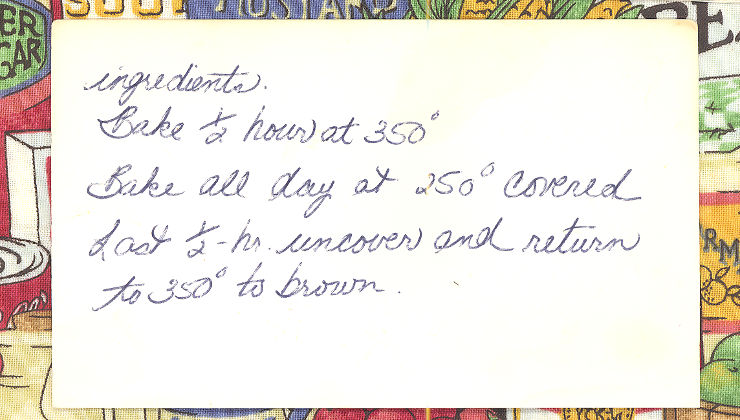 SOUP MUSTARD
ingredients.
Bake ½ hour at 350°
Bake all day at 250° covered
Last ½-hr. uncover and return
to 350° to brown.